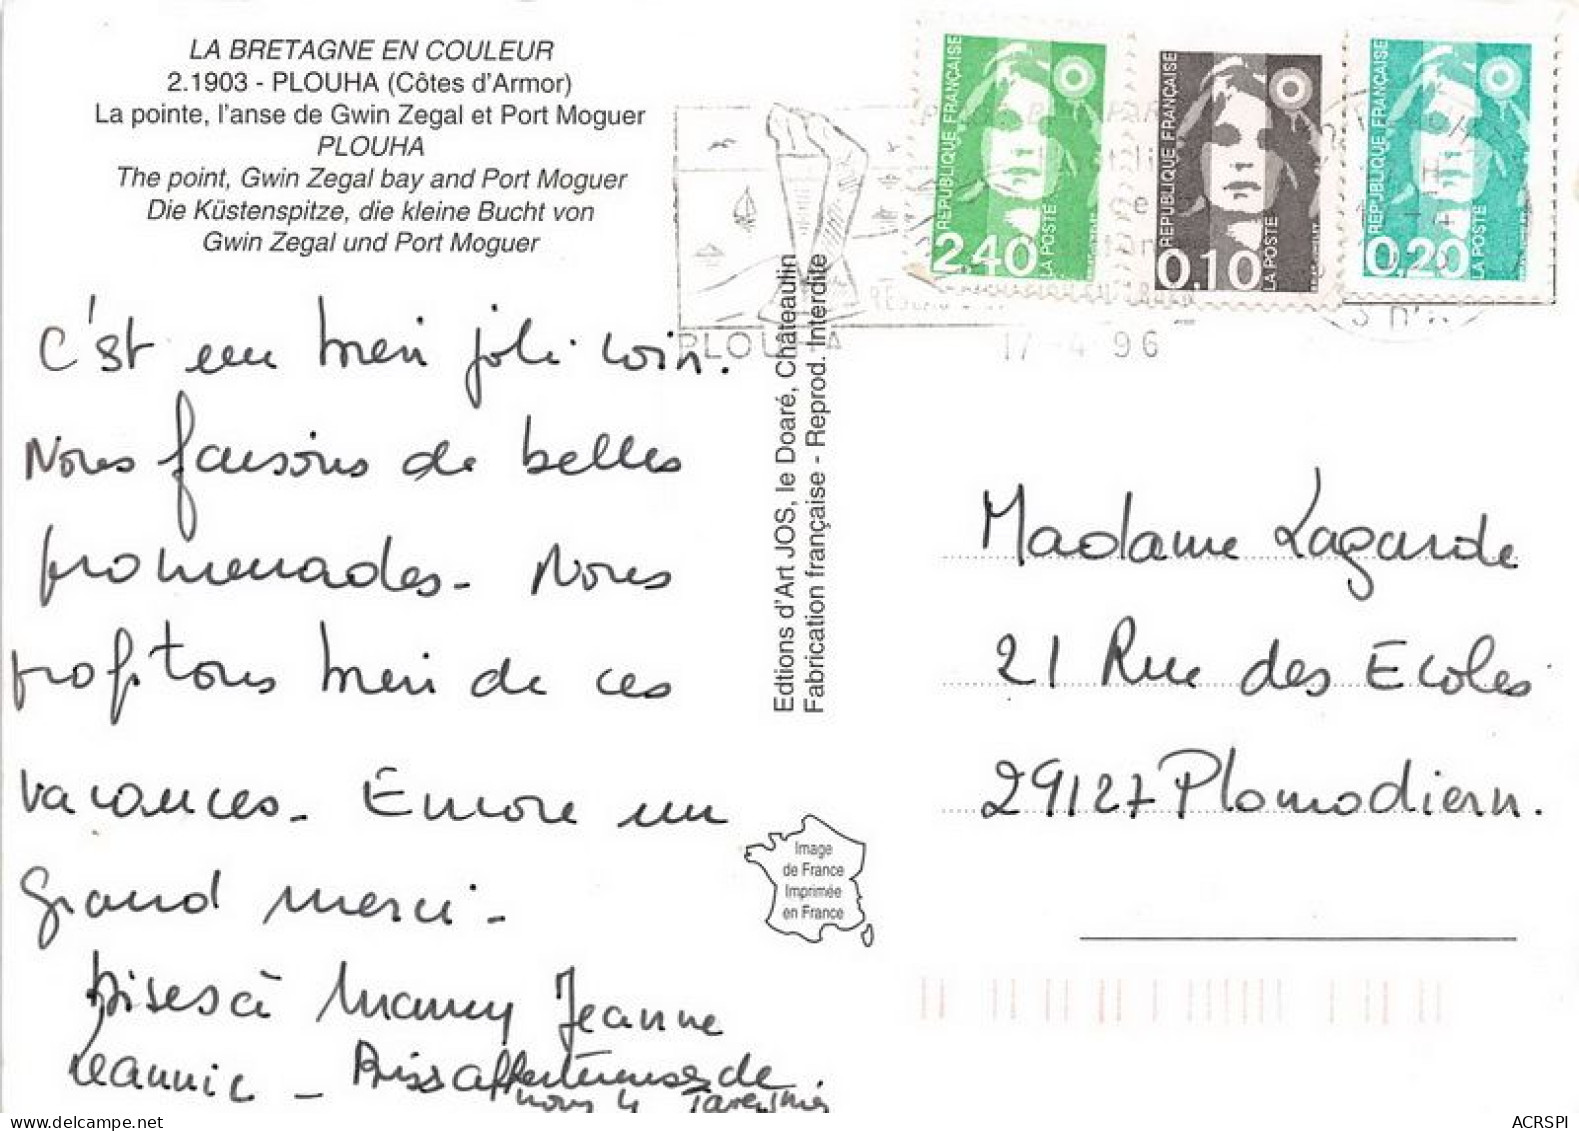 LA BRETAGNE EN COULEUR
2.1903 - PLOUHA (Côtes d'Armor)
La pointe, l'anse de Gwin Zegal et Port Moguer
PLOUHA
The point, Gwin Zegal bay and Port Moguer
Die Küstenspitze, die kleine Bucht von
Gwin Zegal und Port Moguer
RÉPUBLIQUE FRANÇAISE
2,40
LA POSTE
RÉPUBLIQUE FRANÇAISE
0,10
LA POSTE
RÉPUBLIQUE FRANÇAISE
0,20
LA POSTE
PLOUHA
17 - 4 96
C'est un bien joli coin.
Nous faisons de belles
promenades - Nous
profitons bien de ces
vacances - Encore un
grand merci -
Bises à Mamy Jeanne
Jeannic - Bises affectueuses de
nous 4
Edtions d'Art JOS, le Doaré, Châteaulin
Fabrication française - Reprod. Interdite
Image
de France
Imprimée
en France
Madame Lagarde
21 Rue des Ecoles
29127 Plomodiern.
ACRSPI